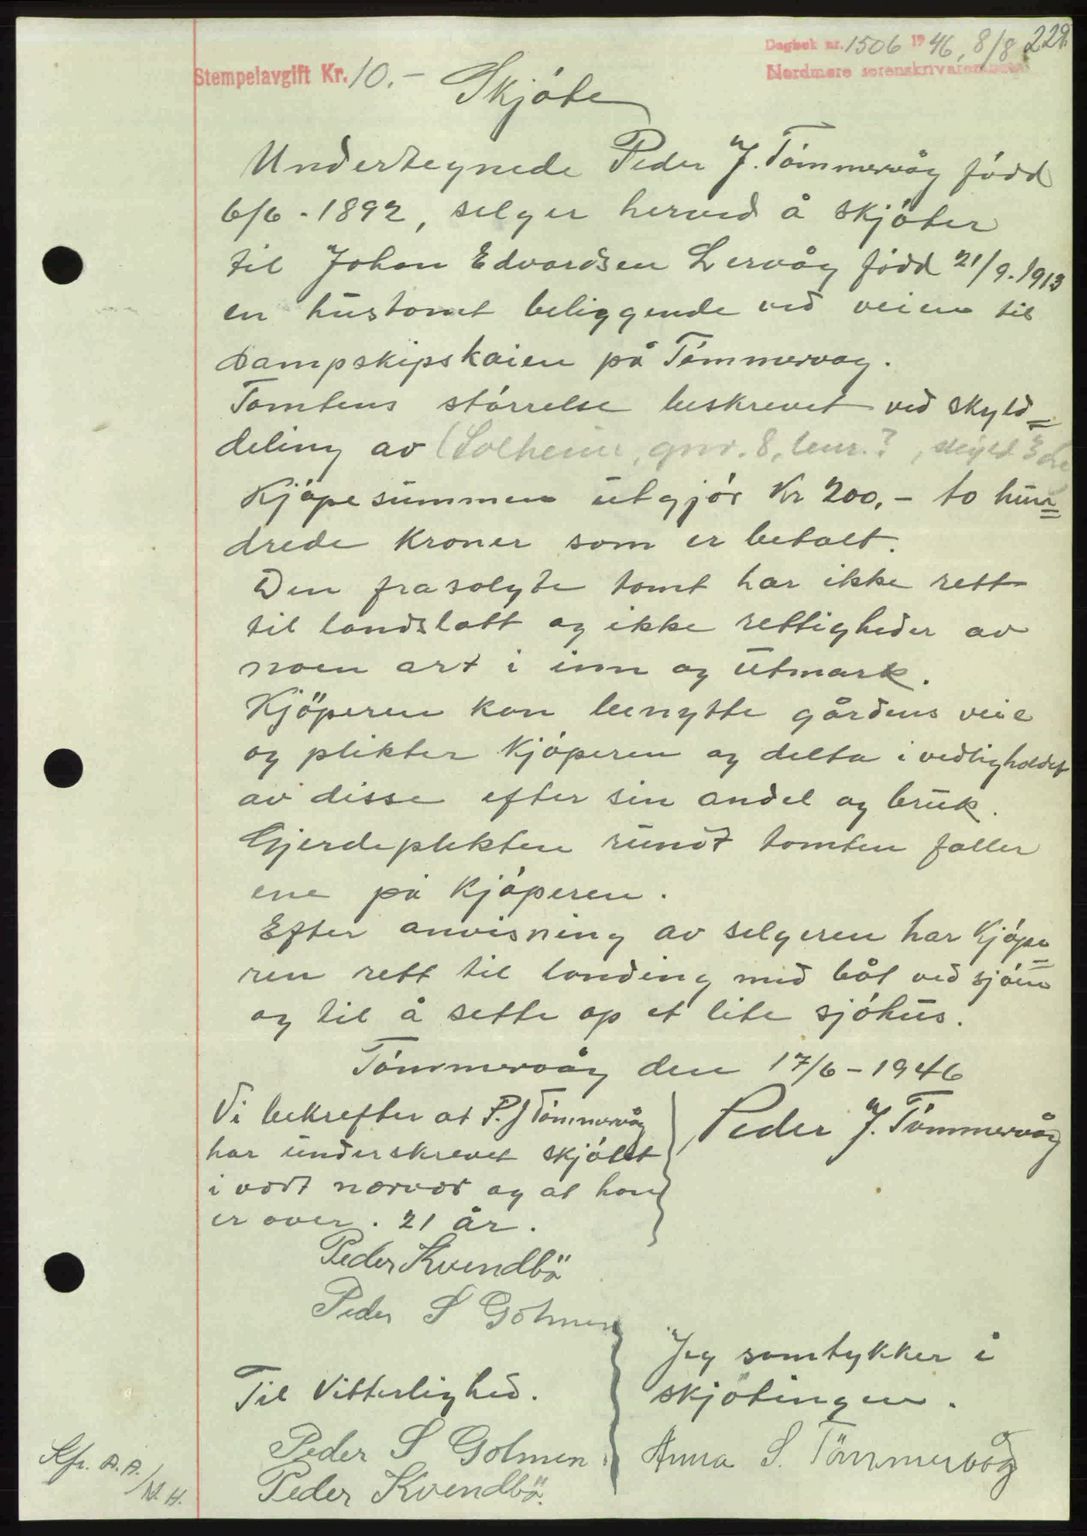 Dagbok nr. 1506 1946, 8/8 229.
Nordmøre sorenskriverembete
Stempelavgift Kr. 10.-
Skjóte
Undertegnede Peder J. Tómmervåg fódd
6/6 - 1892, selger herved å skjóter
til Johan Edvardsen Lervåg fódd 21/9. 1913
en hustomt beliggende ved veien til
Dampskipskaien på Tómmervag.
Tomtens stórrelse beskrevet ved skyld=
deling av (Solheim, gnr. 8, bnr. ?, skyld 3 øre
Kjópesummen utgjór Kr 200.- to hun=
drede Kroner som er betalt.
Den frasolgte tomt har ikke rett
til landslott og ikke rettigheder av
noen art i inn og utmark.
Kjöperen kan benytte gårdens veie
og plikter Kjóperen og delta i vedligholdet
av disse efter sin andel og bruk.
Gjerdeplikten rundt tomten faller
ene på Kjóperen.
Efter anvisning av selgeren har Kjópe=
ren rett til landing med båt ved sjóen
og til å sette op et lite sjóhus.
Tómmervåg den 17/6 - 1946
Peder J. Tómmervåg
Vi bekrefter at P. J Tómmervåg
har underskrevet skjótet
i vort nærvær og at han
er over 21 år.
Peder Kvendbö
Peder S Golmen
Jeg samtykker i
skjótingen.
Anna S. Tömmervåg
Til Vitterlighed.
Peder S Golmen
Peder Kvendbö.
Kfr. A.A.
/N. H.